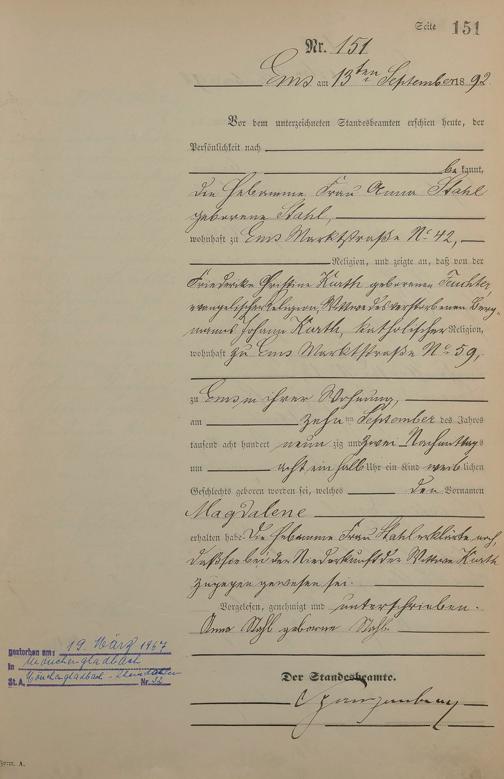 Seite 151
Nr. 151
Ems am 13ten September 1892
Vor dem unterzeichneten Standesbeamten erschien heute, der
Persönlichkeit nach
bekannt,
die Hebamme Frau Anna Stahl
geborene Stahl,
wohnhaft zu Ems Marktstraße No 42,
Religion, und zeigte an, daß von der
Friederike Christine Korth geborenen
evangelischer Religion, Wittwe des verstorbenen Berg-
manns Johann Korth, katholischer Religion,
wohnhaft zu Ems Marktstraße No 59,
zu Ems in ihrer Wohnung,
am zehn ten September des Jahres
tausend acht hundert neun zig und zwei Nachmittags
um acht ein halb Uhr ein Kind weiblichen
Geschlechts geboren worden sei, welches den Vornamen
Magdalene
erhalten habe. Die Hebamme Frau Stahl erklärte noch,
daß sie bei der Niederkunft der Wittwe Korth
zugegen gewesen sei.
Vorgelesen, genehmigt und unterschrieben.
Anna Stahl geborne Stahl.
gestorben am: 19. März 1967
in Mönchengladbach
St. A. Mönchengladbach - Nr.
Der Standesbeamte.
Form. A.